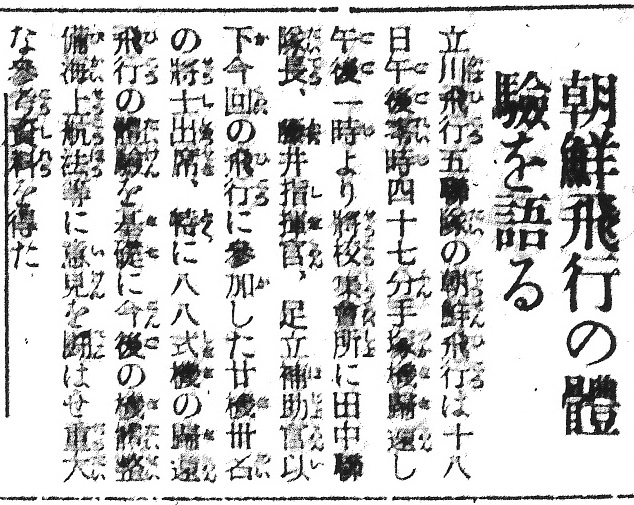 朝鮮飛行の體
驗を語る
立川飛行五聯隊の朝鮮飛行は十八
日午後零時四十七分手塚機歸還し
午後一時より將校集會所に田中聯
隊長、藤井指揮官、足立補助官以
下今回の飛行に參加した廿機卅名
の將士出席、特に八八式機の歸還
飛行の體驗を基礎に今後の機體整
備海上航法等に意見を鬪はせ重大
な參考資料を得た